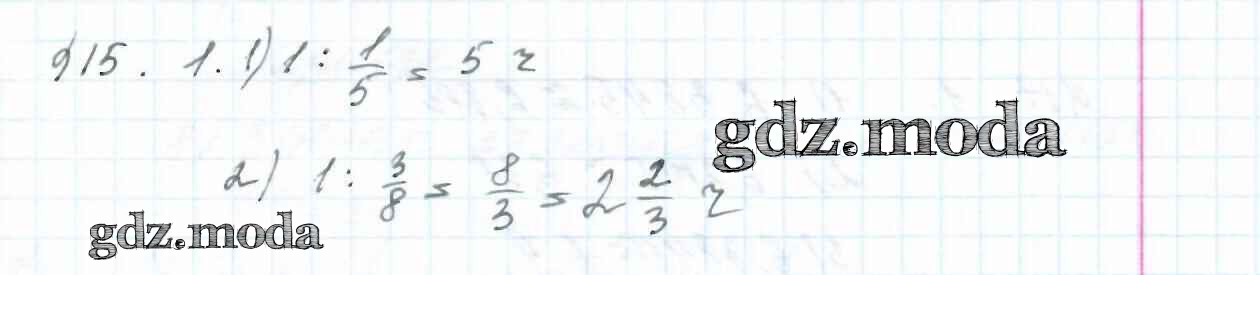 915. 1. 1) 1 : 1/5 = 5 ч
gdz.moda
2) 1 : 3/8 = 8/3 = 2 2/3 ч
gdz.moda